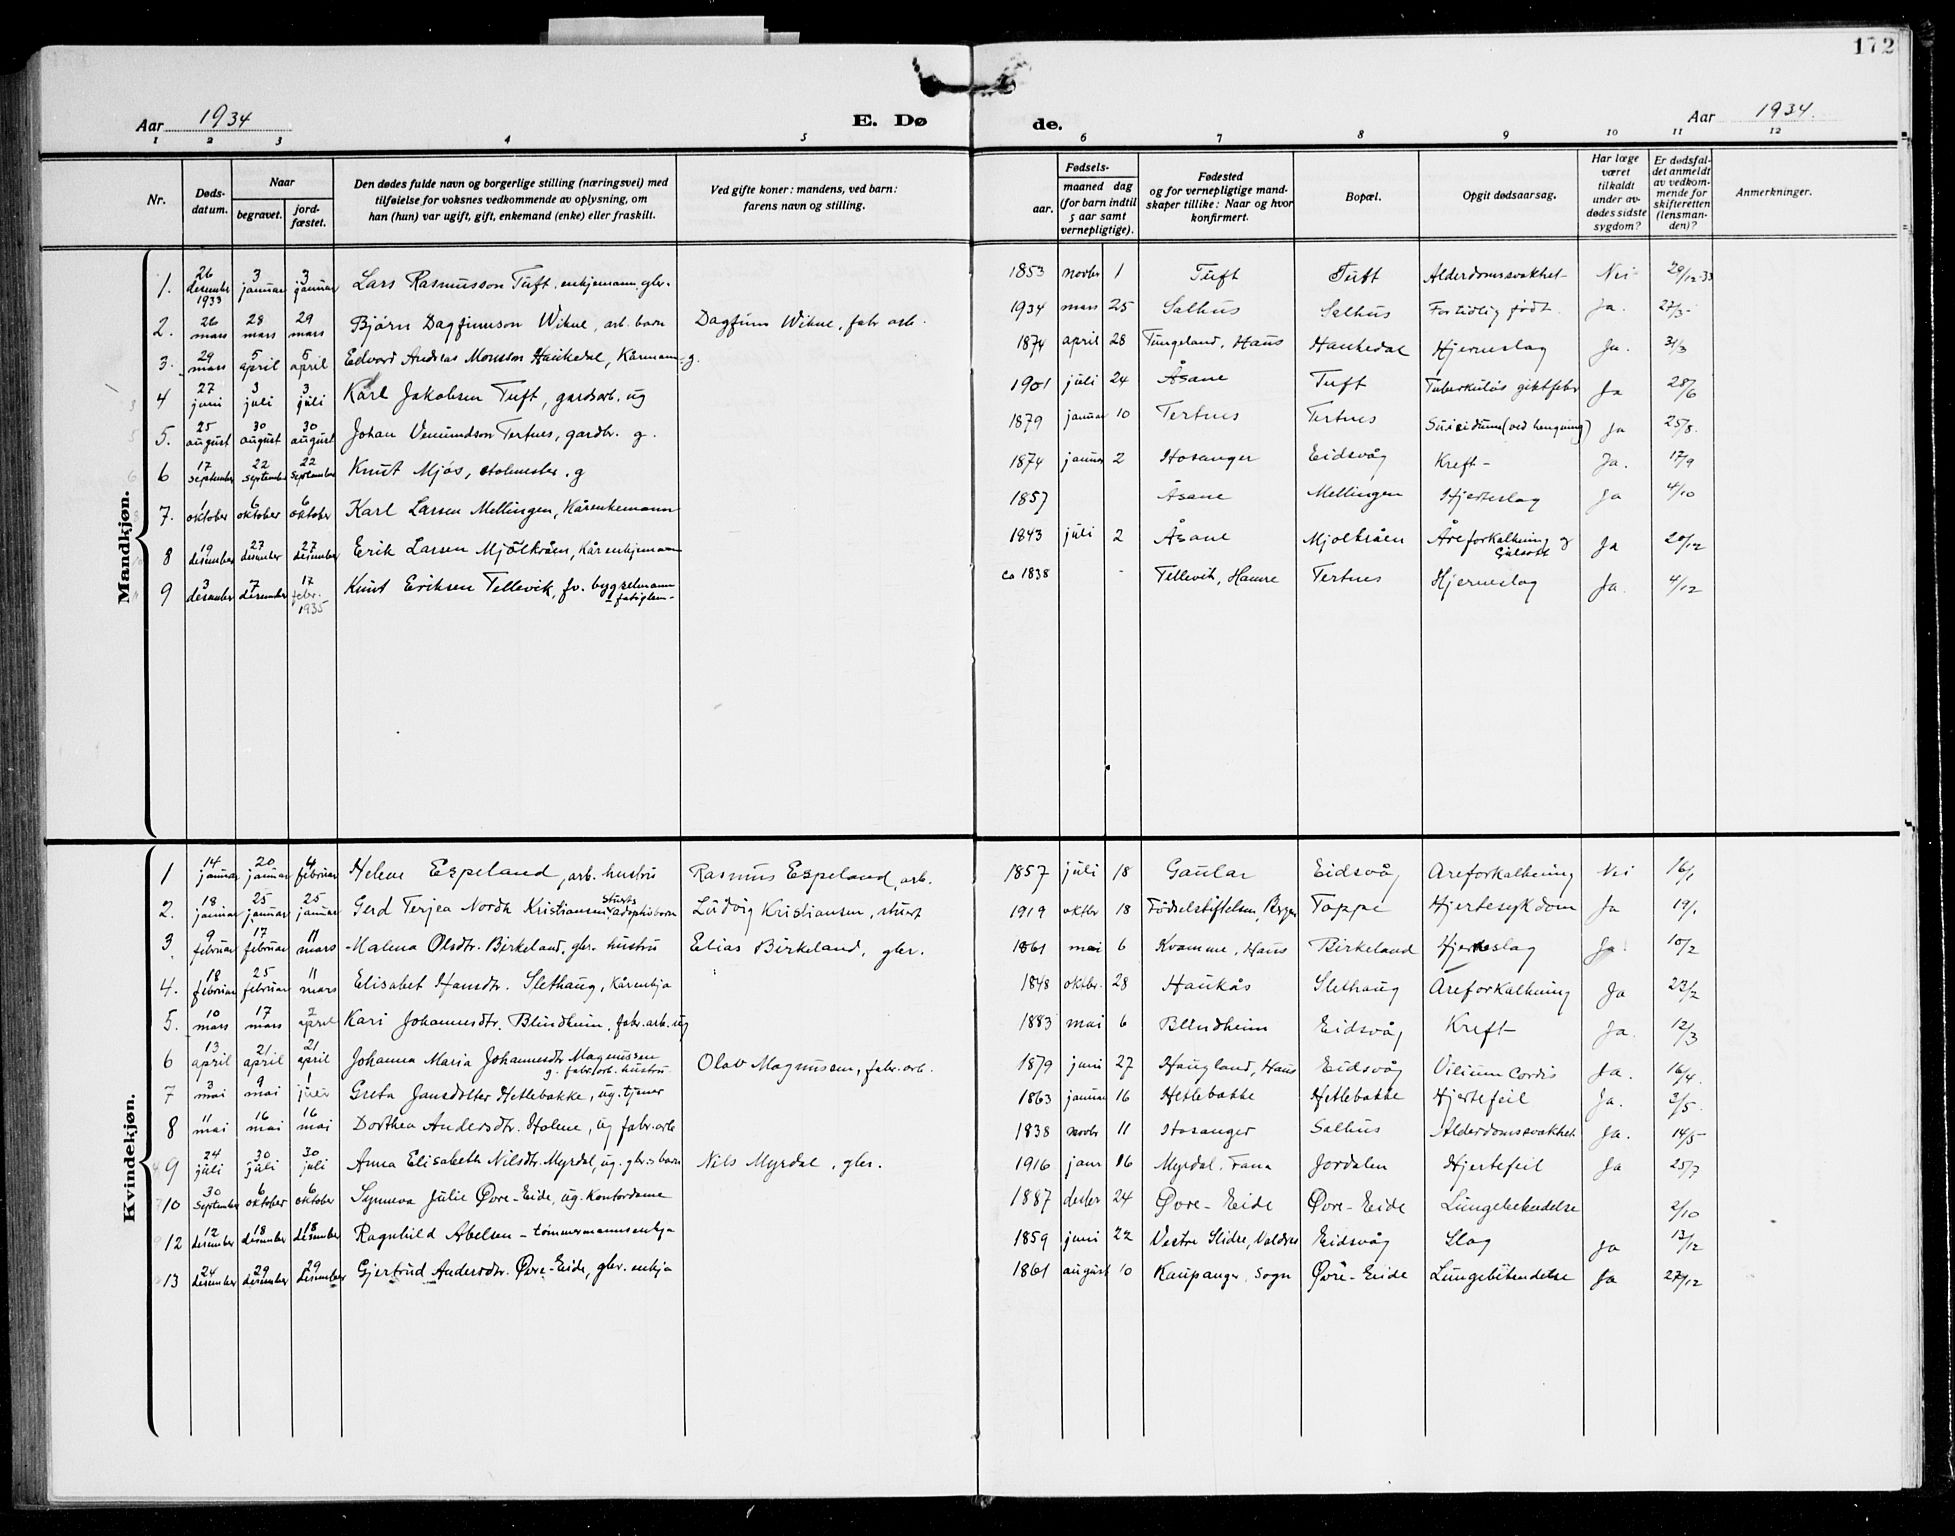 172
Aar 1934 E. Dø de. Aar 1934.
1 2 3 4 5 6 7 8 9 10 11 12
Nr. Døds-datum. Naar begravet. jord-fæstet. Den dødes fulde navn og borgerlige stilling (næringsvei) med tilføielse for voksnes vedkommende av oplysning, om han (hun) var ugift, gift, enkemand (enke) eller fraskilt. Ved gifte koner: mandens, ved barn: farens navn og stilling. Fødsels- aar. maaned dag (for barn indtil 5 aar samt vernepligtige). Fødested og for vernepligtige mand-skaper tillike: Naar og hvor konfirmert. Bopæl. Opgit dødsaarsag. Har læge været tilkaldt under av-dødes sidste sygdom? Er dødsfal-det anmeldt av vedkom-mende for skifteretten (lensman-den)? Anmerkninger.
Mandkjøn.
1. 26 desember 1933 3 januar 3 januar Lars Rasmusson Tuft, enkjemann, gbr. 1853 novbr 1 Tuft Tuft Alderdomssvakhet Nei 29/12-33
2. 26 mars 28 mars 29 mars Bjørn Dagfinnson Wikne, arb. barn Dagfinn Wikne, fabr. arb. 1934 mars 25 Salhus Salhus For tidlig født. Ja. 27/3
3. 29 mars 5 april 5 april Edvard Andreas Monsson Haukedal, Kårmann g. 1874 april 28 Tungeland, Haus Haukedal Hjerneslag Ja. 31/3
4 27 juni 3 juli 3 juli Karl Jakobsen Tuft, gardsarb. ug 1901 juli 24 Åsane Tuft Tuberkuløs giktfeber Ja 28/6
5. 25 august 30 august 30 august Johan Vemundson Tertnes, gardbr. g. 1879 januar 10 Tertnes Tertnes Suicidum (ved hengning) Ja 25/8.
6 17 september 22 september 22 september Knut Mjøs, stolmester. g 1874 januar 2 Hosanger Eidsvåg Kreft Ja. 17/9
7. 1 oktober 6 oktober 6 oktober Karl Larsen Mellingen, Kårenkemann 1857 Åsane Mellingen Hjerteslag Ja 4/10
8 19 desember 27 desember 27 desember Erik Larsen Mjölkråen, Kårenkjemann 1843 juli 2 Åsane Mjolkråen Åreforkalkning og Gulsott Ja 20/12
9 3 desember 7 desember 17 febr. 1935 Knut Eriksen Tellevik, fv. bygselmann - fatiglem - ca 1838 - Tellevik, Hamre Tertnes Hjerneslag Ja. 4/12
Kvindekjøn.
1 14 januar 20 januar 4 februar Helene Espeland, arb. hustru Rasmus Espeland, arb. 1857 juli 18 Gaular Eidsvåg Areforkalkning Nei 16/1
2. 18 januar 25 januar 25 januar Gerd Terjea Nordh Kristiansen stuerts adoptivbarn Ludvig Kristiansen, stuert 1919 oktbr 18 Födselstiftelsen, Bergen Toppe Hjertesykdom Ja 19/1
3. 9 februar 17 februar 11 mars Malena Olsdtr. Birkeland, gbr. hustru Elias Birkeland, gbr. 1861 mai 6 Kvamme, Haus Birkeland Hjerteslag Ja. 10/2
4. 18 februar 25 februar 11 mars Elisabet Hansdtr. Slethaug, Kårenkja 1848 oktbr. 28 Haukås Slethaug Areforkalkning Ja 23/2
5. 10 mars 17 mars 2 april Kari Johannesdtr. Blindheim, fabr. arb. ug 1883 mai 6 Blindheim Eidsvåg Kreft Ja. 12/3
6 13 april 21 april 21 april Johanna Maria Johannesdtr Magnussen g. fabr. arb. hustru Olav Magnussen, fabr. arb. 1879 juni 27 Haugland, Haus Eidsvåg Vitium Cordis Ja. 16/4.
7 3 mai 9 mai 1 juni Greta Jansdotter Hetlebakke, ug. tjener 1863 januar 16 Hetlebakke Hetlebakke Hjertefeil Ja. 3/5.
8 11 mai 16 mai 16 mai Dorthea Andersdtr. Holme, ug fabr. arb 1838 novbr 11 Hosanger Salhus Alderdomssvakhet Ja. 14/5
9 24 juli 30 juli 30 juli Anna Elisabeth Nilsdtr. Myrdal, ug. gbr.s barn Nils Myrdal, gbr. 1916 janr 16 Myrdal, Fana Jordalen Hjertefeil Ja 25/7
10 30 september 6 oktober 6 oktober Synneva Julie Øvre-Eide, ug. Kontordame 1887 desbr 24 Øvre-Eide Øvre-Eide Lungebetendelse 2/10
12 12 desember 18 desember 18 desember Ragnhild Abelsen - tømmermannsenkja 1859 juni 22 Vestre Slidre, Valdres Eidsvåg Slag Ja 13/12
13 24 desember 29 desember 29 desember Gjertrud Andersdtr. Øvre-Eide, gbr. enkja 1861 august 10 Kaupanger, Sogn Øvre-Eide Lungebetendelse Ja 27/12